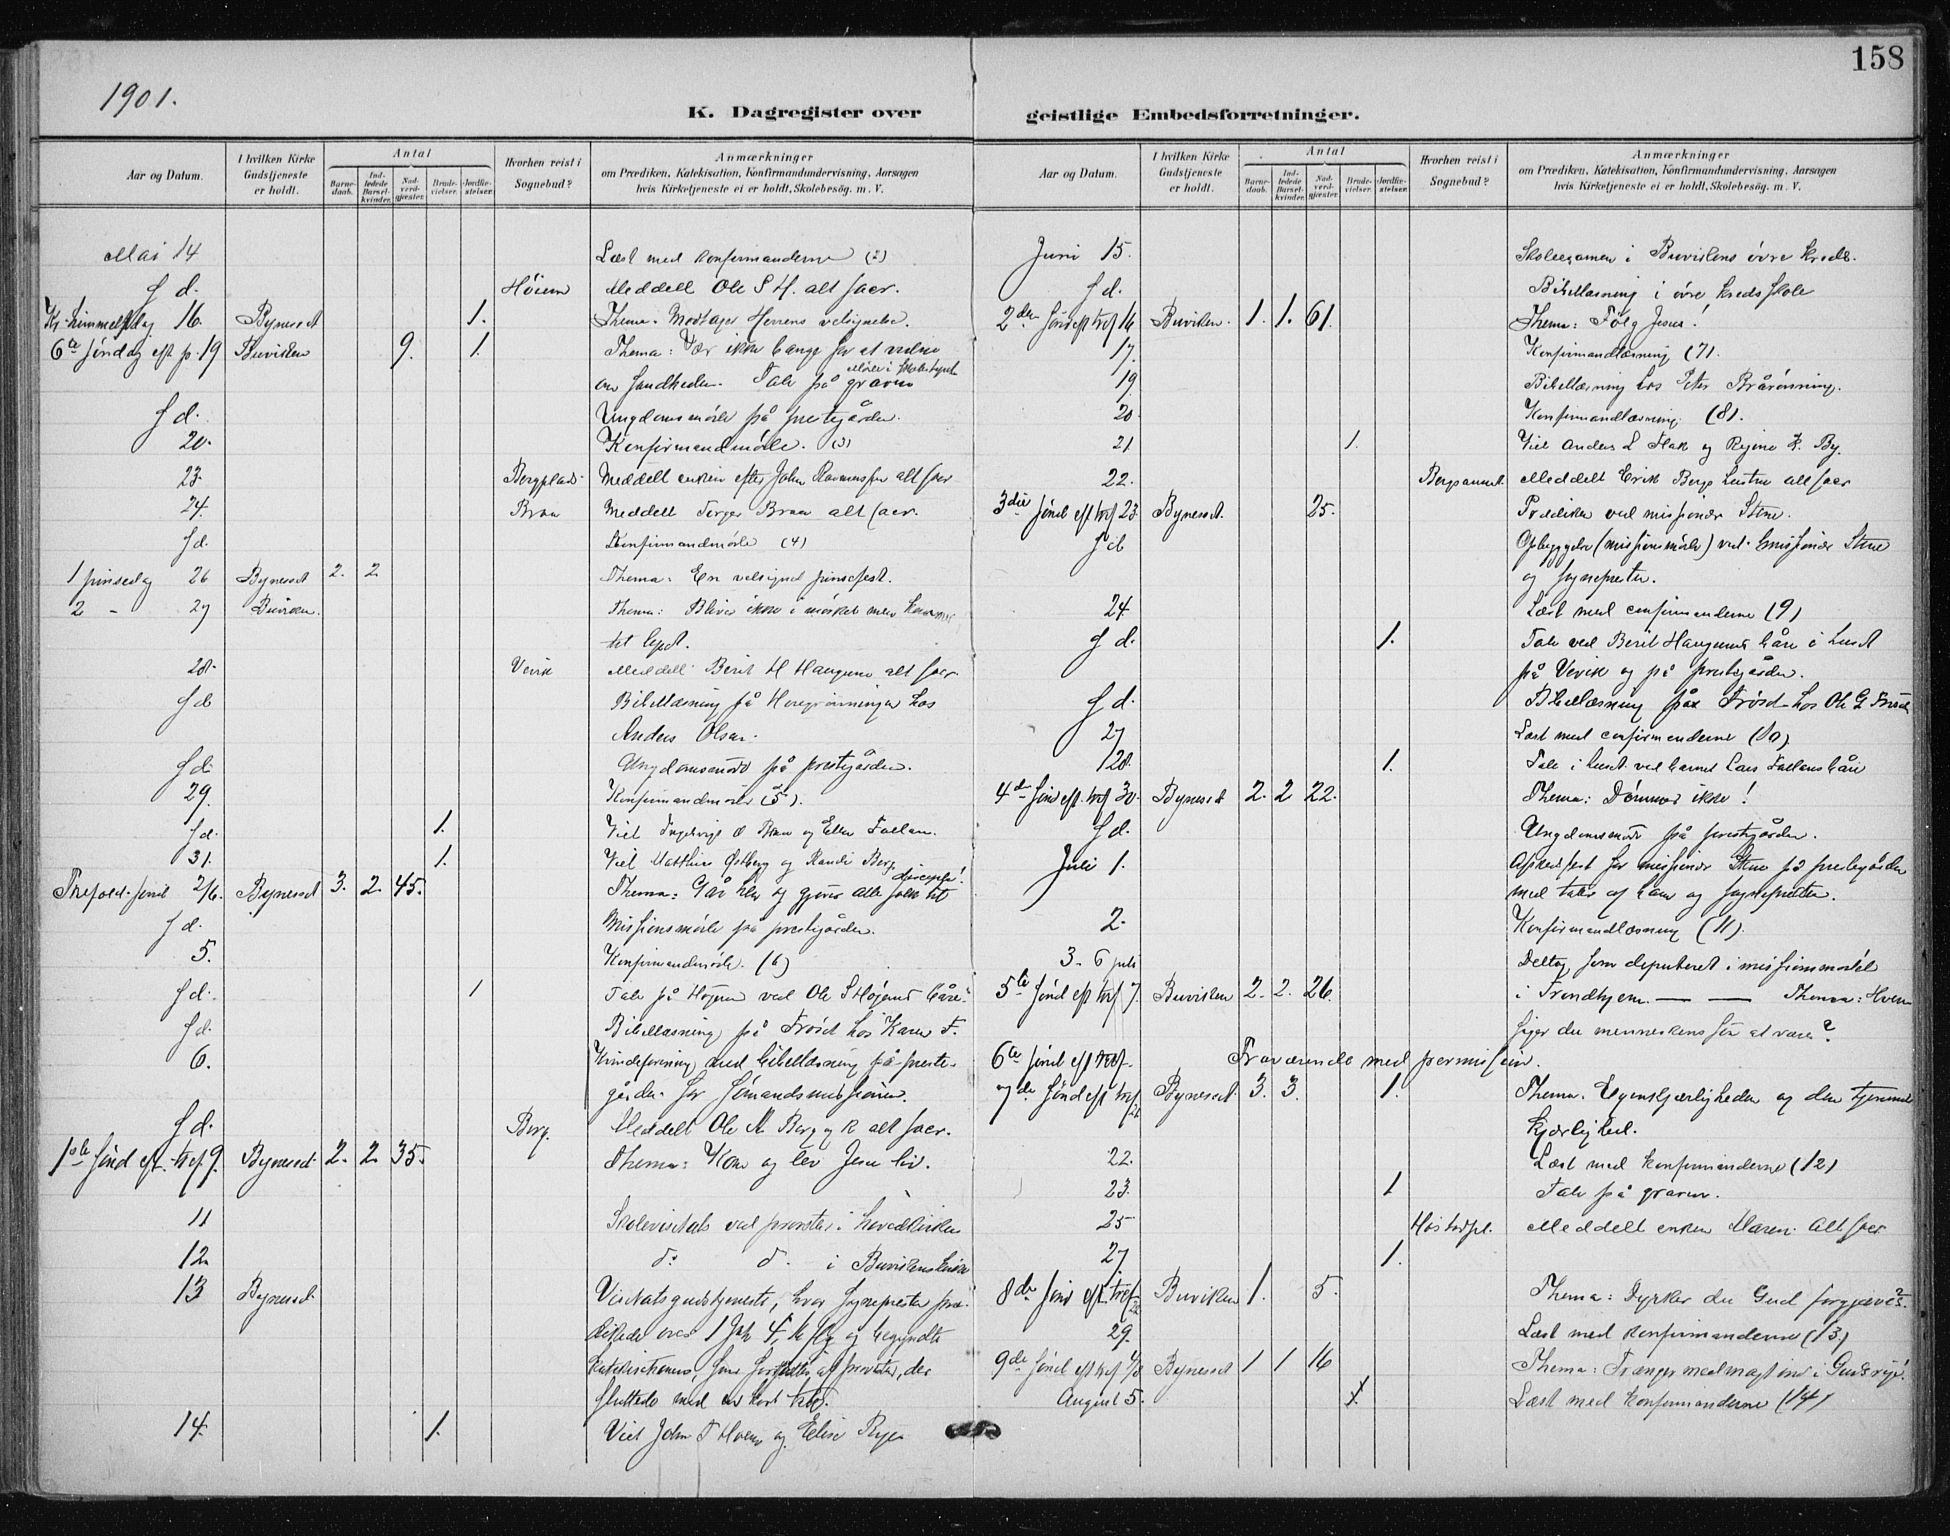 158
1901.
K. Dagregister over geistlige Embedsforretninger.
Aar og Datum. I hvilken Kirke Gudstjeneste er holdt. Antal Barnedaab. Indledede Barselkvinder. Nadverdgjæster. Brudevielser. Jordfæstelser. Hvorhen reist i Sognebud? Anmærkninger om Prædiken, Katekisation, Konfirmandundervisning, Aarsagen hvis Kirketjeneste ei er holdt, Skolebesøg. m. V.
Mai 14 Læst med konfirmanderne (2)
S d. Høiem Meddelt Ole S H. alt sacr.
Kr. himmelf.dag 16. Bynesset 1. Thema: Modtager Herrens velsignelse.
6te søndag eft p. 19 Buviken 9. 1. Thema: Vær ikke bange for at vidne
om sandheden. Tale på graven
S d. Ungdomsmøde på prestegården.
20. Konfirmandmøde. (3)
23. Bergplads Meddelt enken efter John alt sacr
24. Braa Meddelt Torger Braa alt sacr.
S d. Konfirmandmøde (4)
1 pinsedag 26 Bynesset 2. 2 Thema: En velsignet pinsefest.
2 - 27 Buviken. Thema: Bliver ikke i mørket men kommer
til lyset.
28. Vevik Meddelt Berit H Haugum alt sacr.
S d Bibellæsning på hos
Anders Olsen.
S d. Ungdomsmøde på prestegården.
29. Konfirmandmøde (5).
S d. 1. Viet Braa og Ellen Fallan.
31. 1. Viet Matthias Østberg og Randi Berg
Trefold. sønd 2/6. Bynesset 3. 2. 45. Thema: Går hen og gjører alle folk til disciple!
S d. Missionsmøde på prestegården.
5. Konfirmandmøde. (6)
S d. 1 Tale på Høyem ved Ole S Høyems båre.
S d. Bibellæsning på Frøset hos Karen F.
6. Kvindeforening med bibellæsning på preste-
gården for Sømandsmissionen.
S d. Berg. Meddelt Ole M. Berg alt sacr.
1ste sønd eft. tref 9. Bynesset 2. 2 35. Thema: Kom og lev Jesu liv.
11 Skolevisitats ved provsten i hovedkirken
12 d: d. i Buvikens kirke
13 Bynesset Visitatsgudstjeneste, hvor sognepresten præ-
dikede over 1 Joh 4, og begyndte
katekisationen, som fortsattes af provsten, der
sluttede med en kort tale.
14. 1. Viet John T Hoem og Elise Rye
Aar og Datum. I hvilken Kirke Gudstjeneste er holdt. Antal Barnedaab. Indledede Barselkvinder. Nadverdgjæster. Brudevielser. Jordfæstelser. Hvorhen reist i Sognebud? Anmærkninger om Prædiken, Katekisation, Konfirmandundervisning, Aarsagen hvis Kirketjeneste ei er holdt, Skolebesøg. m. V.
Juni 15. Skoleexamen i Buvikens øvre kreds.
S d. Bibellæsning i øvre kreds skole
2den sønd eft tref 16 Buviken. 1. 1. 61. Thema: Følg Jesus!
17. Konfirmandlæsning (7).
19. Bibellæsning hos Peter
20. Konfirmandlæsning. (8).
21 1. Viet Anders L Flak og Regine K. By.
22. Bergsaunet. Meddelt Erik Berg hustru alt sacr
3die sønd eft tref 23. Bynesset. 25. Prædiken ved missionær Stene.
S d Opbyggelse (missionsmøde) ved missionær Stene
og sognepresten.
24. Læst med confirmanderne (9)
S d. 1. Tale ved Berit Haugums båre i huset
på Vevik og på prestegården.
S d. Bibellæsning på Frøset hos Ole G Frøset
27 Læst med confirmanderne (10)
28. 1. Tale i huset ved barnet Lars Fallans båre
4de sønd eft. tref 30. Bynesset 2. 2 22. Thema: Dømmer ikke!
S d. Ungdomsmøde på prestegården.
Juli 1. Afskedsfest for missionær Stene på prestegården
med taler af ham og sognepresten.
2. Konfirmandlæsning (11).
3 - 6 juli Deltog som deputeret i missionsmødet
5te sønd eft tref 7. Buviken 2. 2. 26. i Trondhjem. — — Thema: Hvem
siger du menneskens søn at være?
6te sønd eft tref. Fraværende med permission.
7de sønd eft tref 21 Bynesset 3. 3. 1. Thema. Egenkjærligheden og den tjenende
kjærlighed.
22. Læst med konfirmanderne (12)
23. 1 Tale på graven.
25 Høstadpl. Meddelt enken Maren alt sacr
27. 1.
8de sønd eft. tref 28 Buviken 1. 5. Thema: Dyrker du Gud forgjæves?
29. Læst med konfirmanderne (13)
9de sønd eft tref 4/8 Bynesset 1 1 16 Thema: Trænger med magt ind i Guds rige!
August 5. 1. Læst med konfirmanderne (14)